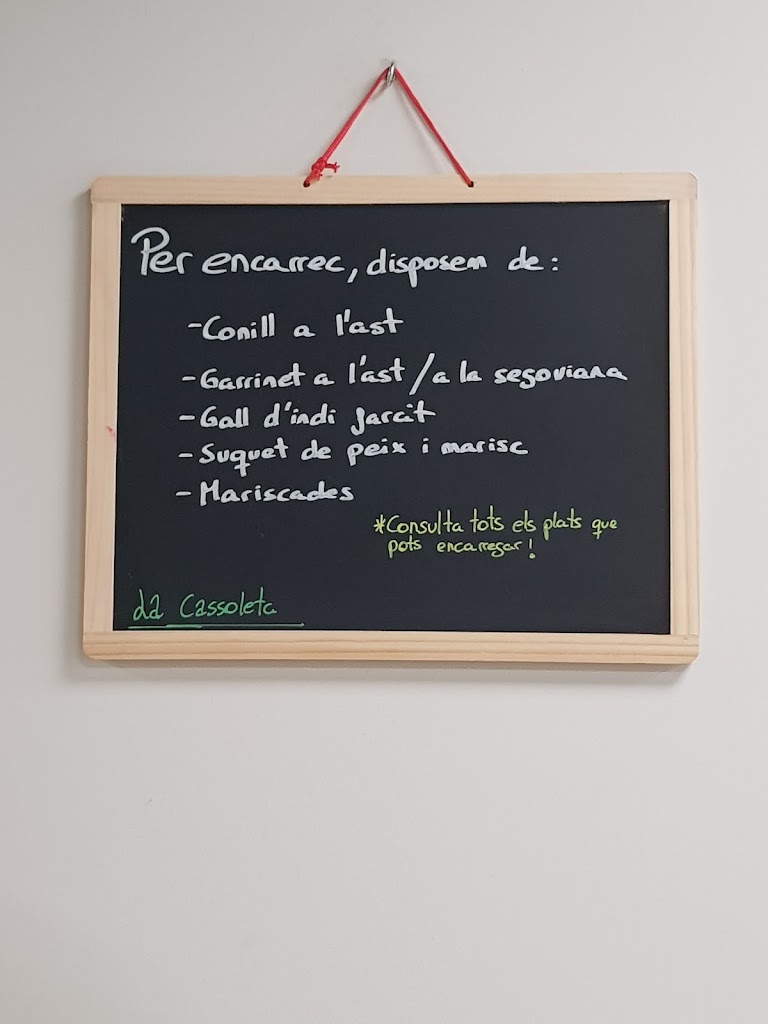 Per encarrec, disposem de:
-Conill a l'ast
-Garrinet a l'ast/a la segoviana
-Gall d'indi farcit
-Suquet de peix i marisc
-Mariscades
*Consulta tots els plats que
pots encarregar!
La Cassoleta